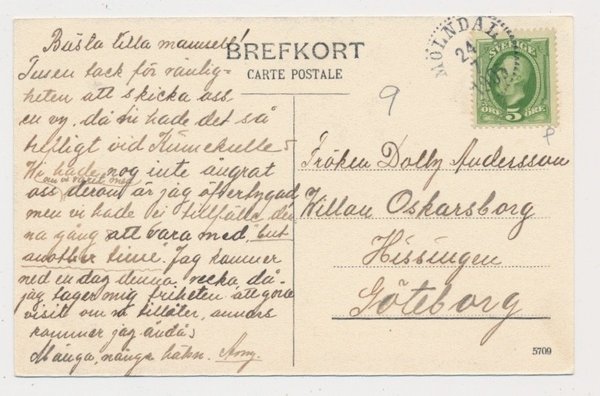 Bästa lilla mamsell!
Tusen tack för vänlig=
heten att skicka oss
en vy, då Du hade det så
heligt vid Kinnekulle.
Vi hade, nog inte ångrat
om vi varit med
oss derom är jag öfvertygad
men vi hade ej tillfälle, den
na gång att vara med, "but
another time". Jag kommer
ned en dag denna vecka, då
jag tager mig friheten att göra
visit om ni tillåter, annars
kommer jag ändå;
Många, många hälsn. Amy.
BREFKORT
CARTE POSTALE
MÖLNDAL
24
SVERIGE
5
ÖRE ÖRE
9
Fröken Dolly Andersson
Villan Oskarsborg
Hissingen
Göteborg
5709